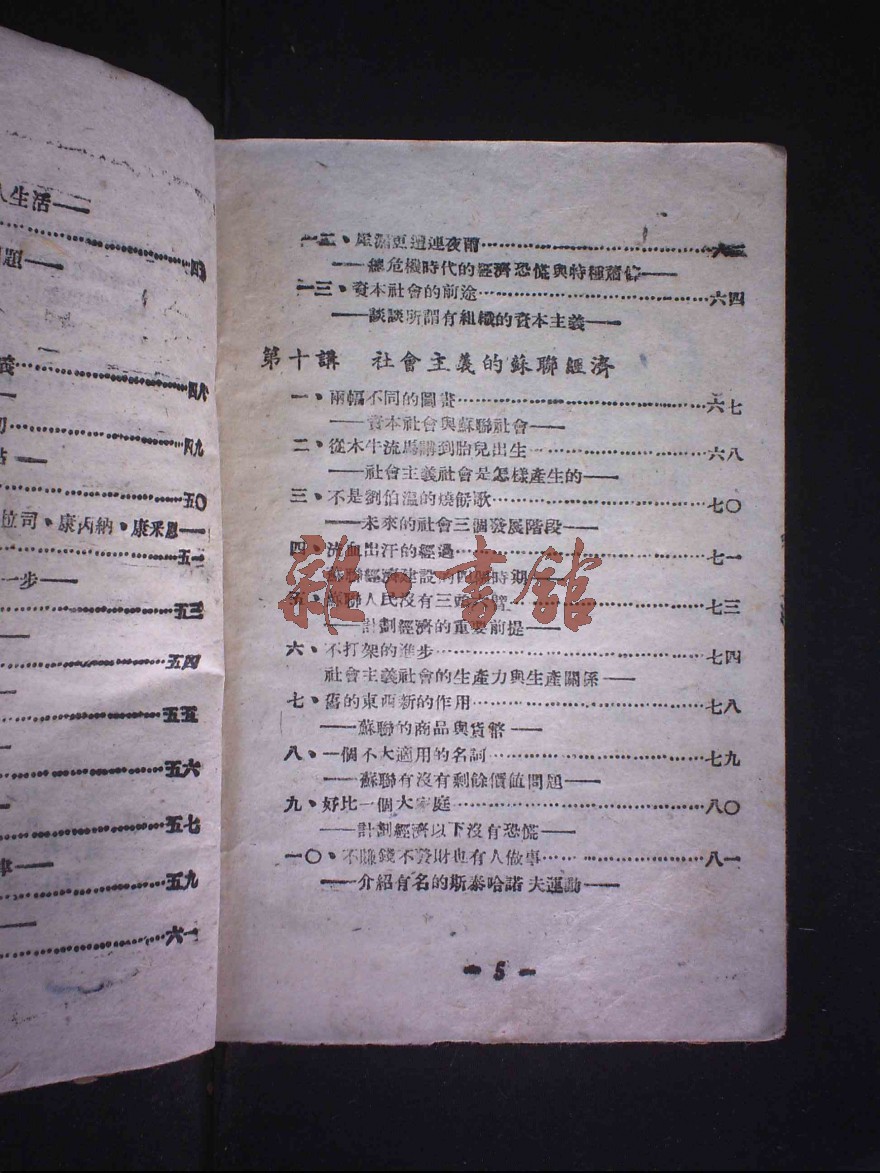 人生活——
四
題——
四八
四九
點——
五〇
拉司、康丙納、康采恩——
五一
一步——
五三
五四
五五
五六
五七
律——
五九
六一
一二、屋漏更遭連夜雨
——總危機時代的經濟恐慌與特種蕭條——
一三、資本社會的前途……六四
——談談所謂有組織的資本主義——
第十講 社會主義的蘇聯經濟
一、兩幅不同的圖畫……六七
——資本社會與蘇聯社會——
二、從木牛流馬講到胎兒出生……六八
——社會主義社會是怎樣產生的——
三、不是劉伯溫的燒餅歌……七〇
——未來的社會三個發展階段——
四、流血出汗的經過……七一
蘇聯經濟建設的四個時期——
五、蘇聯人民沒有三頭六臂……七三
——計劃經濟的重要前提——
六、不打架的進步……七四
社會主義社會的生產力與生產關係——
七、舊的東西新的作用……七八
——蘇聯的商品與貨幣——
八、一個不大適用的名詞……七九
——蘇聯有沒有剩餘價值問題——
九、好比一個大家庭……八〇
——計劃經濟以下沒有恐慌——
一〇、不賺錢不發財也有人做事……八一
——介紹有名的斯泰哈諾夫運動——
— 5 —
雜·書館